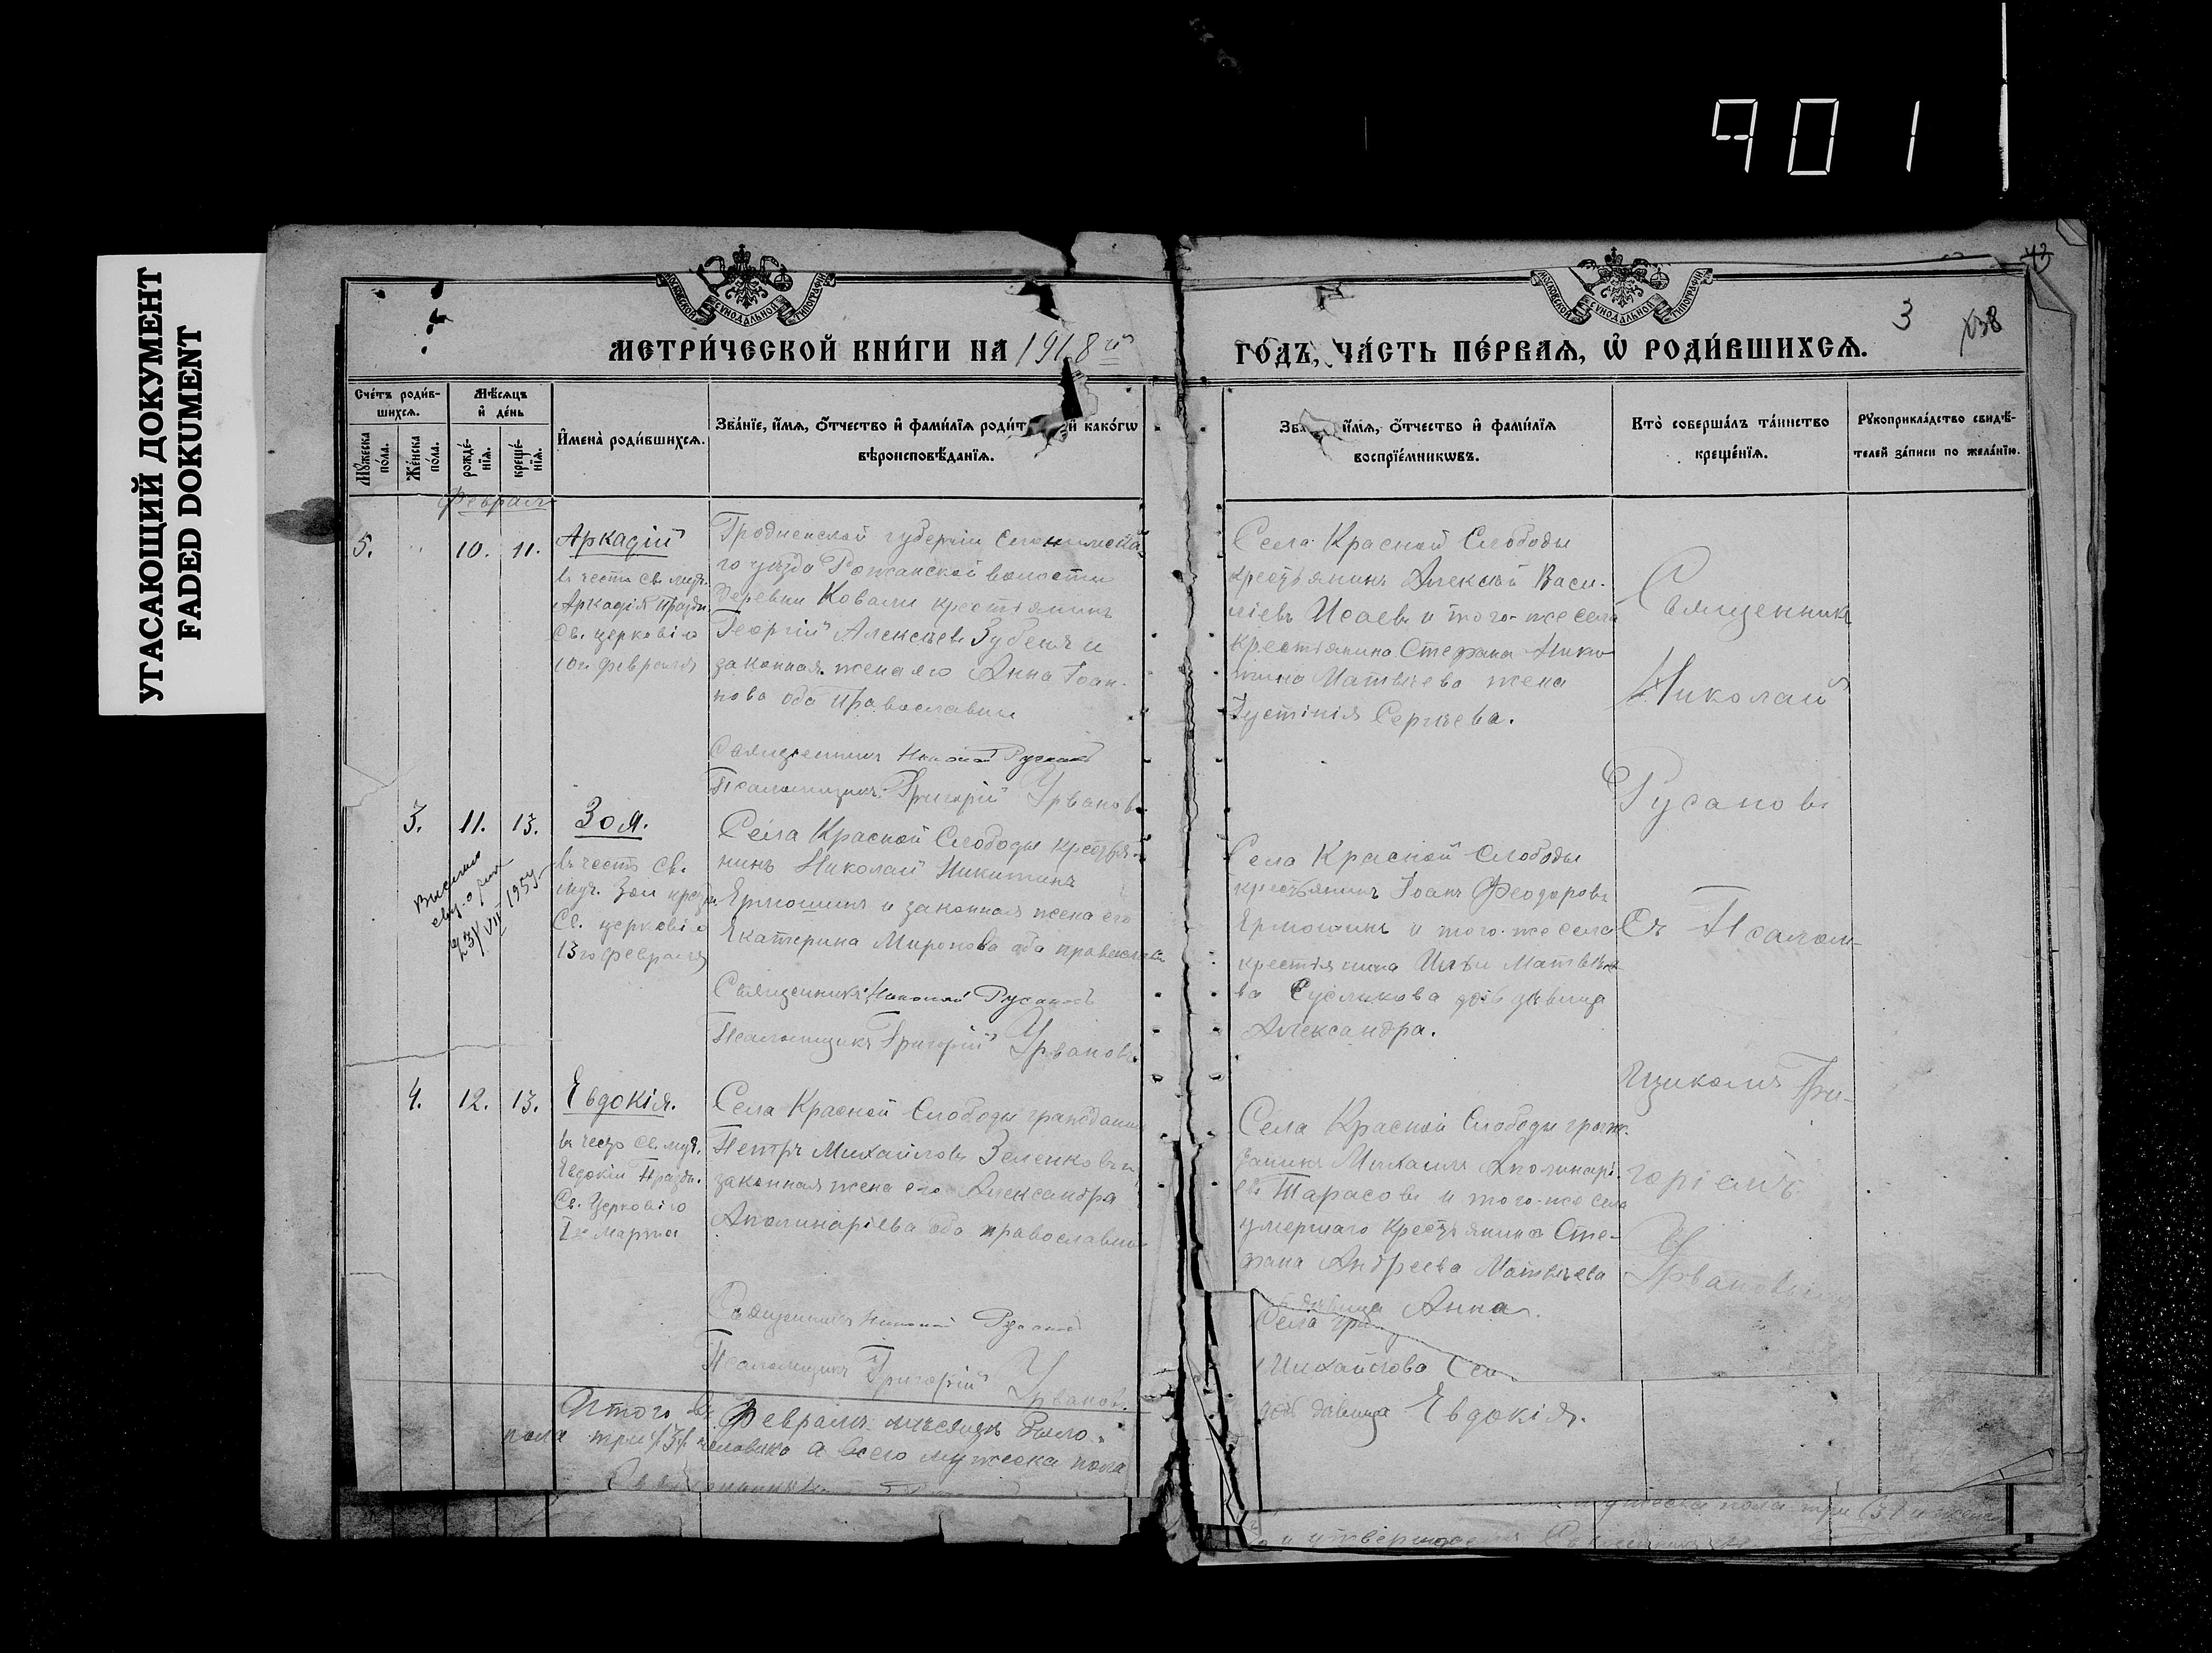 901
УГАСАЮЩИЙ ДОКУМЕНТ
FADED DOKUMENT
МОСКОВСКОЙ СУНОДАЛЬНОЙ ТИПОГРАФІИ
МОСКОВСКОЙ СУНОДАЛЬНОЙ ТИПОГРАФІИ
43
3
38
МЕТРИ́ЧЕСКОЙ КНИ́ГИ НА 1918 й
ГО́ДЪ, ЧА́СТЬ ПЕ́РВАЯ, Ѡ РОДИ́ВШИХСЯ.
Сче́тъ роди́в-
шихся.
Мꙋ́жеска
по́ла.
Же́нска
по́ла.
Мѣ́сяцъ
и҆ де́нь
рожде́-
нїя.
креще́-
нїя.
И҆мена̀ роди́вшихся.
Зва́нїе, и҆́мя, о҆́тчество и҆ фами́лїя родит й како́гѡ
вѣроисповѣ́данїя.
Зва и҆́мя, о҆́тчество и҆ фами́лїя
воспрїе́мникѡвъ.
Кто̀ соверша́лъ та́инство
креще́нїя.
Рꙋкоприкла́дство свидѣ́-
телей за́писи по жела́нїю.
Февраль
5.
10.
11.
Аркадій
въ честь св. муч.
Аркадія праздн.
Св. церковію
10го февраля
Гродненской губерніи Слонимска
го уѣзда Рожанской волости
деревни Ковали крестьянинъ
Георгій Алексѣевъ Зубенъ и
законная жена его Анна Іоан-
нова оба православны
Священникъ Николай Русановъ
Псаломщикъ Григорій Урвановъ
Села Красной Слободы
крестьянинъ Алексѣй Васи-
ліевъ Исаевъ и того-же села
крестьянина Стефана Ники
тина Матвѣева жена
Іустинія Сергѣева.
Священникъ
Николай
Русановъ
Съ Псалом-
щикомъ Гри-
горіемъ
Урвановымъ
3.
11.
13.
1957
Зоя.
въ честь св.
муч. Зои праздн.
Св. церковію
13го февраля
Села Красной Слободы крестья-
нинъ Николай Никитинъ
Ермошинъ и законная жена его
Екатерина Миронова оба православны
Священникъ Николай Русановъ
Псаломщикъ Григорій Урвановъ
Села Красной Слободы
крестьянинъ Іоанъ Феодоровъ
Ермошинъ и того-же села
крестьянина Ильи Матвѣе
ва Сусликова дочь дѣвица
Александра.
4.
12.
13.
Евдокія.
въ честь св. муч.
Евдокіи праздн.
Св. Церковію
1го марта
Села Красной Слободы гражданинъ
Петръ Михайловъ Зеленковъ и
законная жена его Александра
Аполинаріева оба православны
Священникъ Николай Русановъ
Псаломщикъ Григорій Урвановъ
Села Красной Слободы граж-
данинъ Михаилъ Аполинарі
евъ Тарасовъ и того-же села
умершаго крестьянина Сте-
фана Андреева Матвѣева
дѣвица Анна.
Села гра
Михайлова Сем
дочь дѣвица Евдокія.
Итого въ Февралѣ мѣсяцѣ было
пола три /3/ человѣка а всего мужеска пола
мужеска пола три /3/ и женска
и утверждаемъ Священникъ